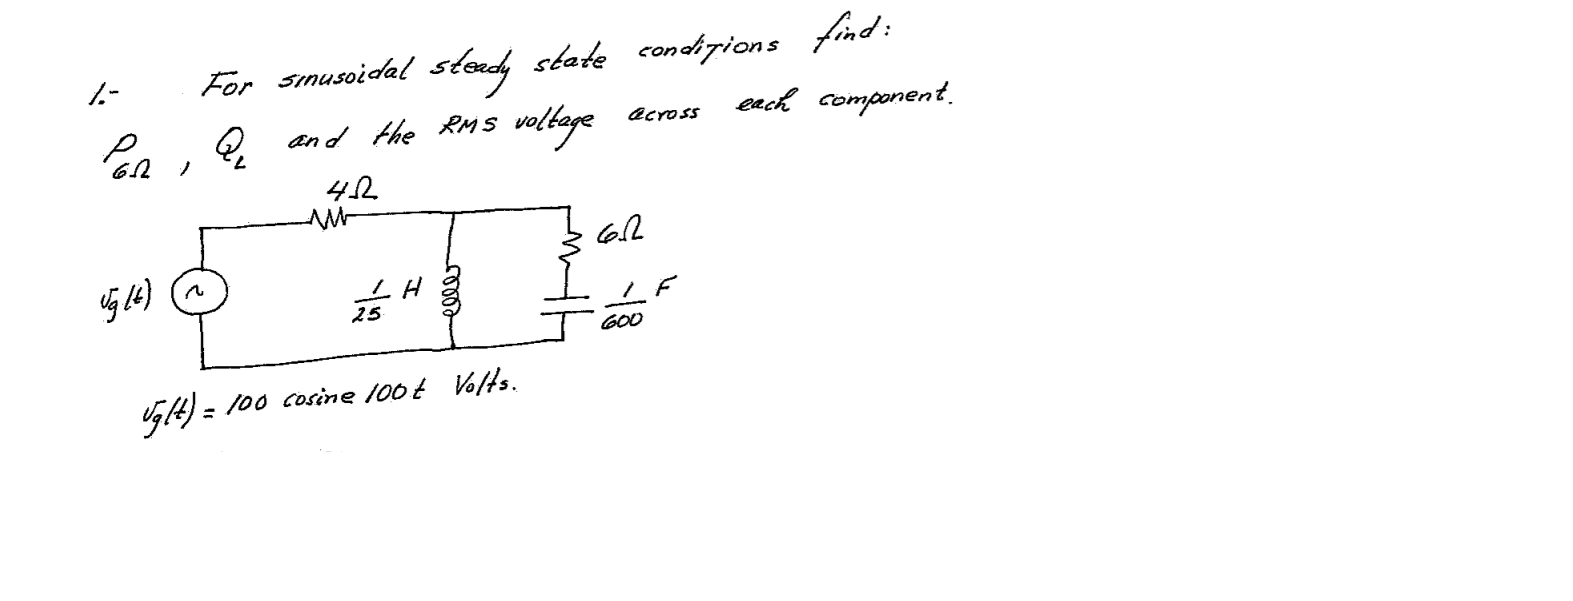 1.- For sinusoidal steady state conditions find:
P6Ω, QL and the RMS voltage across each component.
4Ω
6Ω
vg(t)
~
1/25 H
1/600 F
vg(t) = 100 cosine 100t Volts.